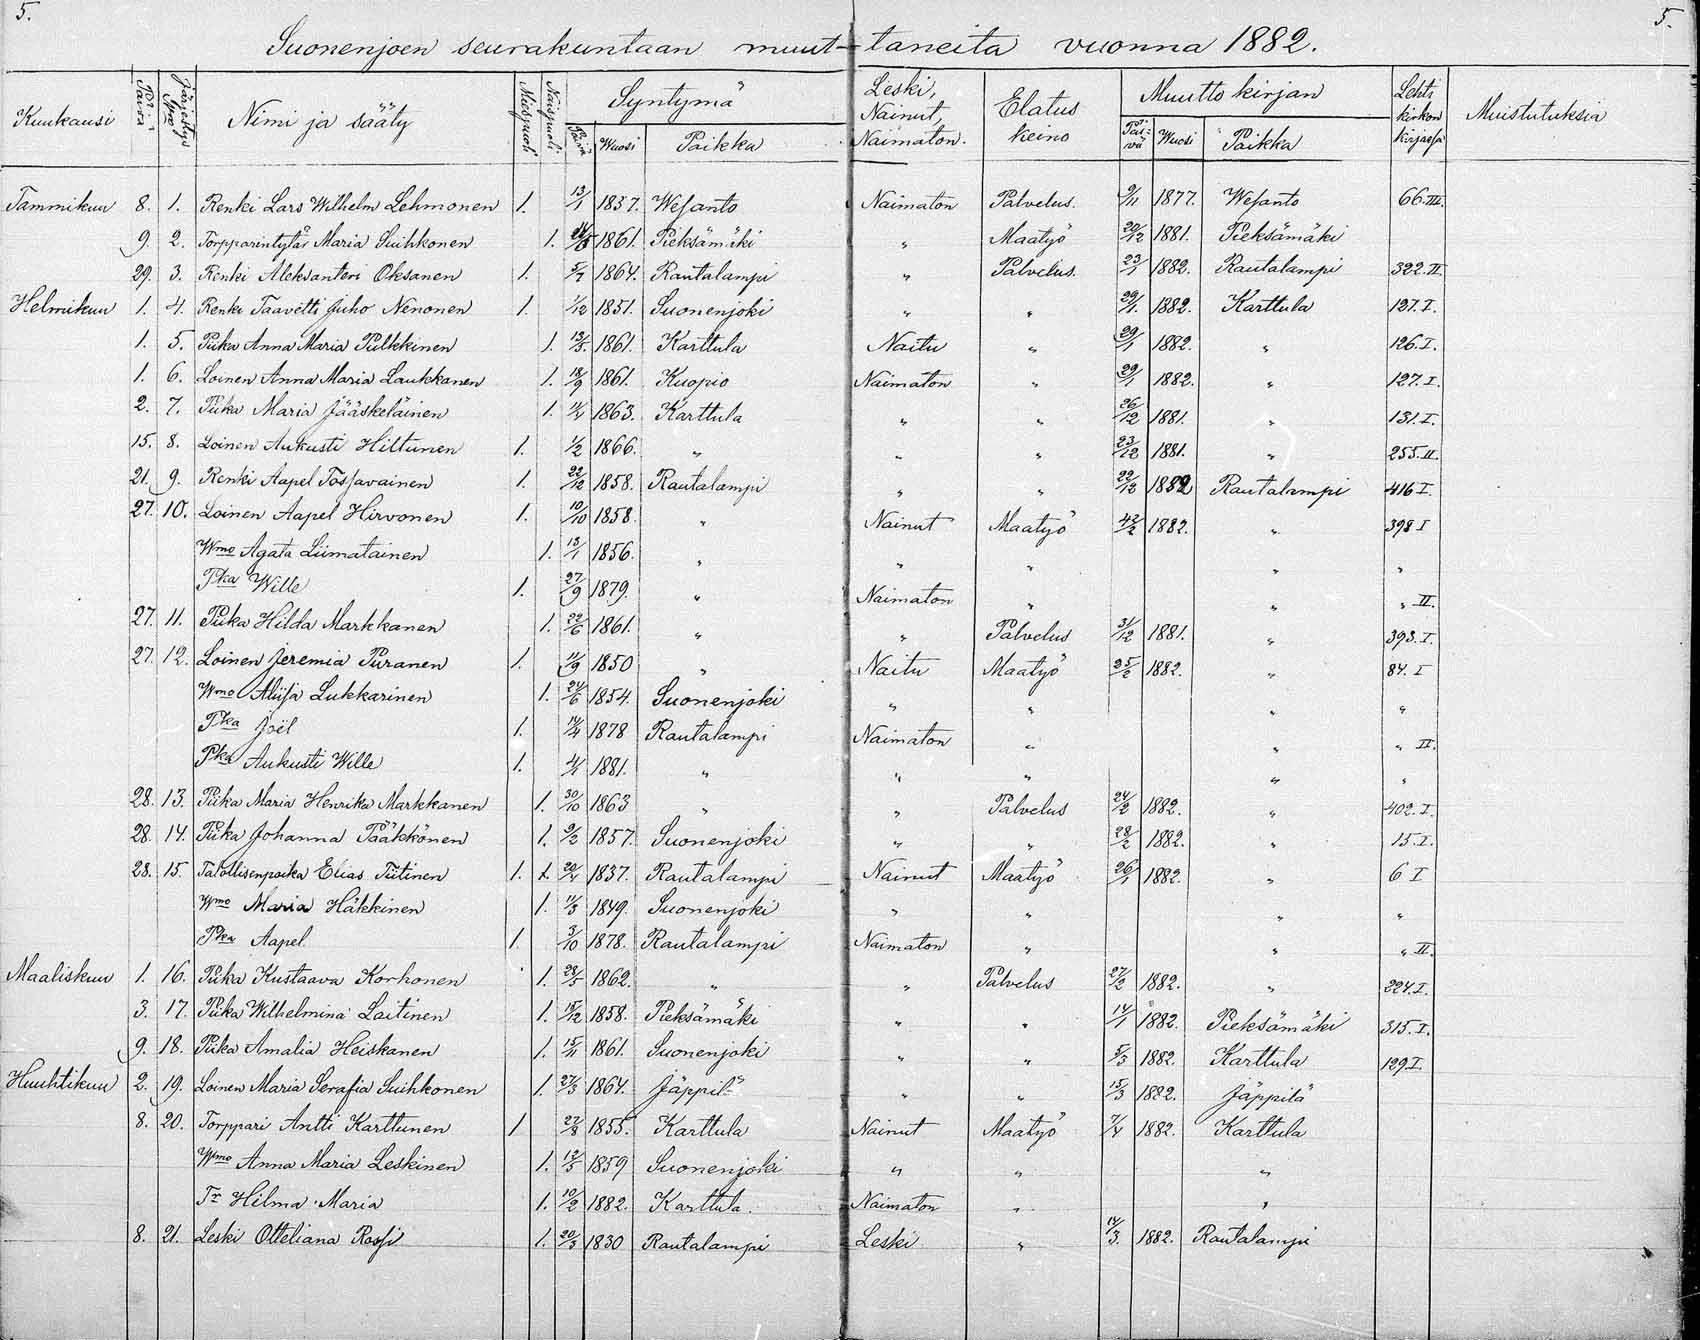 5. 5.
Suonenjoen seurakuntaan muut-taneita vuonna 1882.
Kuukausi Päivä Järjestys Nro Nimi ja sääty Miespuoli Naispuoli Syntymä Päivä Wuosi Paikka Leski, Nainut, Naimaton. Elatus keino Muuttokirjan Päivä Wuosi Paikka Lehti kirkon kirjassa Muistutuksia
Tammikuu 8. 1. Renki Lars Wilhelm Lehmonen 1. 13/1 1837. Wesanto Naimaton Palvelus. 9/11 1877. Wesanto 66.III.
9. 2. Torpparintytär Maria Suihkonen 1. 1861. Pieksämäki " Maatyö 20/12 1881. Pieksämäki
29. 3. Renki Aleksanteri Oksanen 1. 5/7 1864. Rautalampi " Palvelus. 23/1 1882. Rautalampi 322.II.
Helmikuu 1. 4. Renki Taavetti Juho Nenonen 1. 1/12 1851. Suonenjoki " " 29/1. 1882. Karttula 127.I.
1. 5. Piika Anna Maria Pulkkinen 1. 13/5. 1861. Karttula Naitu " 29/1 1882. " 126.I.
1. 6. Loinen Anna Maria Laukkanen 1. 18/9 1861. Kuopio Naimaton " 29/1 1882. " 127.I.
2. 7. Piika Maria Jääskeläinen 1. 11/4 1863. Karttula " " 26/12 1881. " 131.I.
15. 8. Loinen Aukusti Hiltunen 1. 1/2 1866. " " " 23/12 1881. " 255.II.
21. 9. Renki Aapel Tossavainen 1. 22/12 1858. Rautalampi " " 22/12 1882 Rautalampi 416 I.
27. 10. Loinen Aapel Hirvonen 1. 10/10 1858. " Nainut Maatyö 1882. " 398 I
Wmo Agata Liimatainen 1. 13/1 1856. " " " " "
Pka Wille 1. 27/9 1879. " Naimaton " " " II.
27. 11. Piika Hilda Markkanen 1. 22/6 1861. " " Palvelus 31/12 1881. " 393.I.
27. 12. Loinen Jeremia Puranen 1. 11/9 1850 " Naitu Maatyö 25/2 1882. " 84. I
Wmo Aliisa Lukkarinen 1. 24/6 1854. Suonenjoki " " " "
Pka Joël 1. 14/4 1878 Rautalampi Naimaton " " " II.
Pka Aukusti Wille 1. 4/1 1881. " " " " "
28. 13. Piika Maria Henrika Markkanen 1. 30/10 1863 " " Palvelus 24/2 1882. " 402.I.
28. 14. Piika Johanna Pääkkönen 1. 9/2 1857. Suonenjoki " " 28/2 1882. " 15.I.
28. 15. Talollisenpoika Elias Tiitinen 1. 1. 20/4 1837. Rautalampi Nainut Maatyö 26/1 1882. " 6 I
Wmo Maria Häkkinen 1. 11/3 1849. Suonenjoki " " " "
Pka Aapel 1. 3/10 1878. Rautalampi Naimaton " " " II.
Maaliskuu 1. 16. Piika Kustaava Korhonen 1. 28/5 1862. " " Palvelus 27/2 1882. " 224.I.
3. 17. Piika Wilhelmina Laitinen 1. 15/12 1858. Pieksämäki " " 14/1 1882. Pieksämäki 315.I.
9. 18. Piika Amalia Heiskanen 1. 15/11 1861. Suonenjoki " " 5/3 1882. Karttula 129.I.
Huuhtikuu 2. 19. Loinen Maria Serafia Suihkonen 1. 27/3 1864. Jäppilä " " 15/3 1882. Jäppilä
8. 20. Torppari Antti Karttunen 1 27/8 1855. Karttula Nainut Maatyö 7/4 1882. Karttula
Wmo Anna Maria Leskinen 1. 12/5 1859 Suonenjoki " " "
Tr Hilma Maria 1. 10/2 1882. Karttula. Naimaton " "
8. 21. Leski Otteliana Rossi 1. 20/3 1830 Rautalampi Leski " 14/3. 1882. Rautalampi